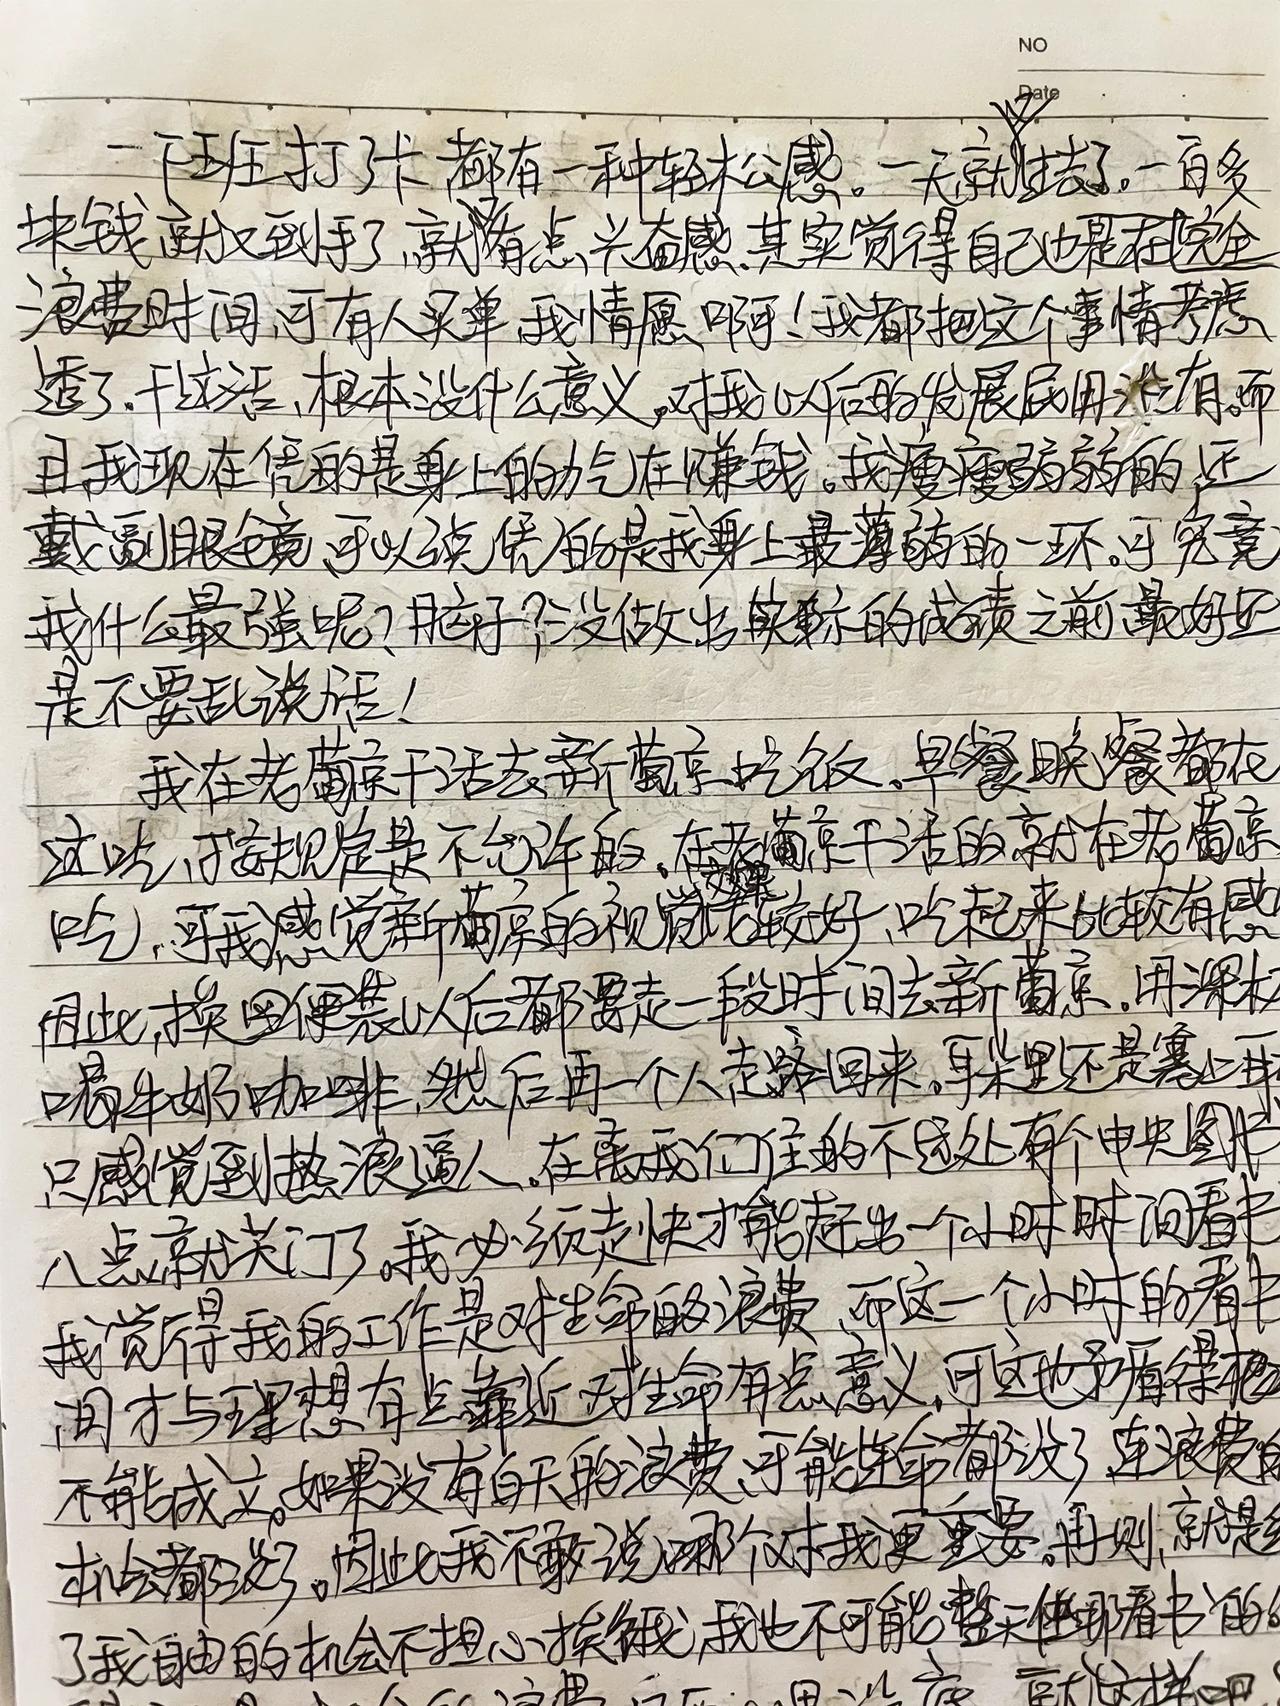 NO
Date
一下班打了卡都有一种轻松公感。一天就结了。一百多
块钱就又到手了,就有点兴奋感、其实觉得自己也是在完全
浪费时间,可有人买单,我情愿啊!我都把这个事情考虑
透了.干这活、根本没什么意义。对我以后的发展屁用没有。而
且我现在凭的是身上的力气在赚钱。我瘦瘦弱弱的,还
戴副眼镜,可以说凭的是我身上最薄弱的一环。可究竟
我什么最强呢?脑子?没做出实际的成绩之前最好还
是不要乱说话!
我在老葡京干活去新葡京吃饭.早餐晚餐都在
这吃,可按规定是不允许的。在老葡京干活的就在老葡京
吃,可我感觉新葡京的视觉效果比较好,吃起来比较有感
因此,换回便装以后都要走一段时间去新葡京.用
喝牛奶咖啡,然后再一个人走路回来。耳朵里还是塞上耳
只感觉到热浪逼人.在离我们住的不远处有个中央图书
八点就关门了。我必须走快才能赶出一个小时时间看书
我觉得我的工作是对生命的浪费,而这一个小时的看书
间才与理想有点靠近对生命有点意义,可这也矛盾得根
不能成立。如果没有白天的浪费,可能连命都没了连浪费的
机会都没了。因此我不敢说哪个对我更重要。再则,就是给
了我自由的机会不担心挨饿,我也不可能整天在那看书的
的浪费